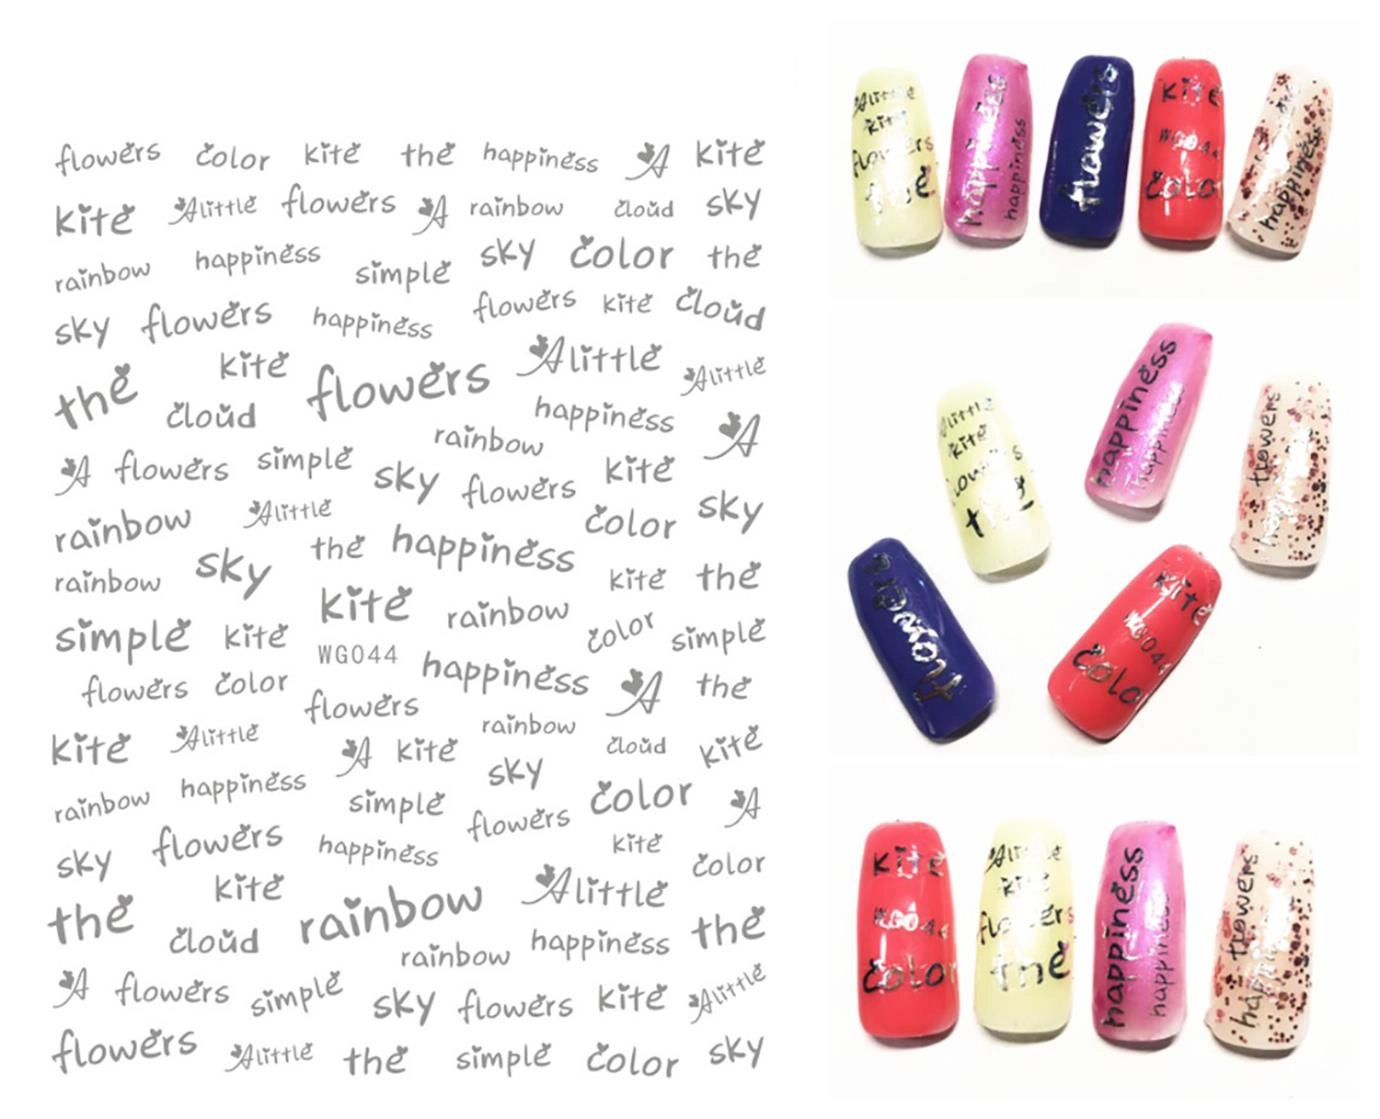 flowers color kite the happiness A kite
kite Alittle flowers A rainbow cloud sky
rainbow happiness simple sky color the
sky flowers happiness flowers kite cloud
the kite flowers Alittle Alittle
cloud rainbow happiness A
A flowers simple sky flowers kite
rainbow Alittle color sky
rainbow sky the happiness kite the
simple kite kite rainbow color simple
WG044
flowers color happiness A the
flowers rainbow
kite Alittle A kite cloud kite
rainbow happiness simple sky color A
sky flowers happiness flowers kite color
the kite rainbow Alittle the
cloud rainbow happiness
A flowers simple sky flowers kite Alittle
flowers Alittle the simple color sky
Alittle
kite
flowers
the
happiness
happiness
flowers
kite
WG044
color
happiness
Alittle
kite
flowers
the
happiness
happiness
flowers
happiness
flowers
kite
WG044
colo
kite
WG044
color
Alittle
kite
flowers
the
happiness
happiness
flowers
happiness